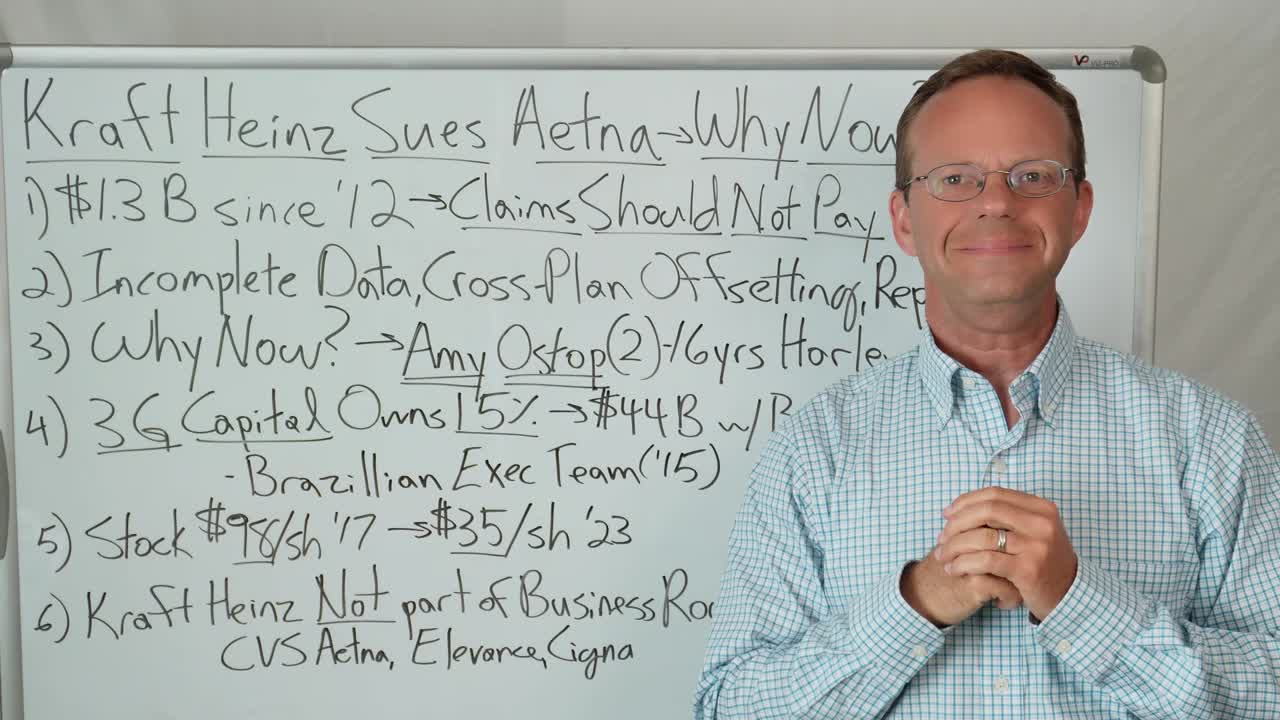 VIZ-PRO
Kraft Heinz Sues Aetna→Why Now
1) $1.3 B since '12→Claims Should Not Pay
2) Incomplete Data, Cross-Plan Offsetting, Rep
3) Why Now? →Amy Ostop(2)-16yrs Harley
4) 3G Capital Owns 15% →$44B w/B
- Brazillian Exec Team('15)
5) Stock $98/sh '17 →$35/sh '23
6) Kraft Heinz Not part of Business Ro
CVS Aetna, Elevance, Cigna